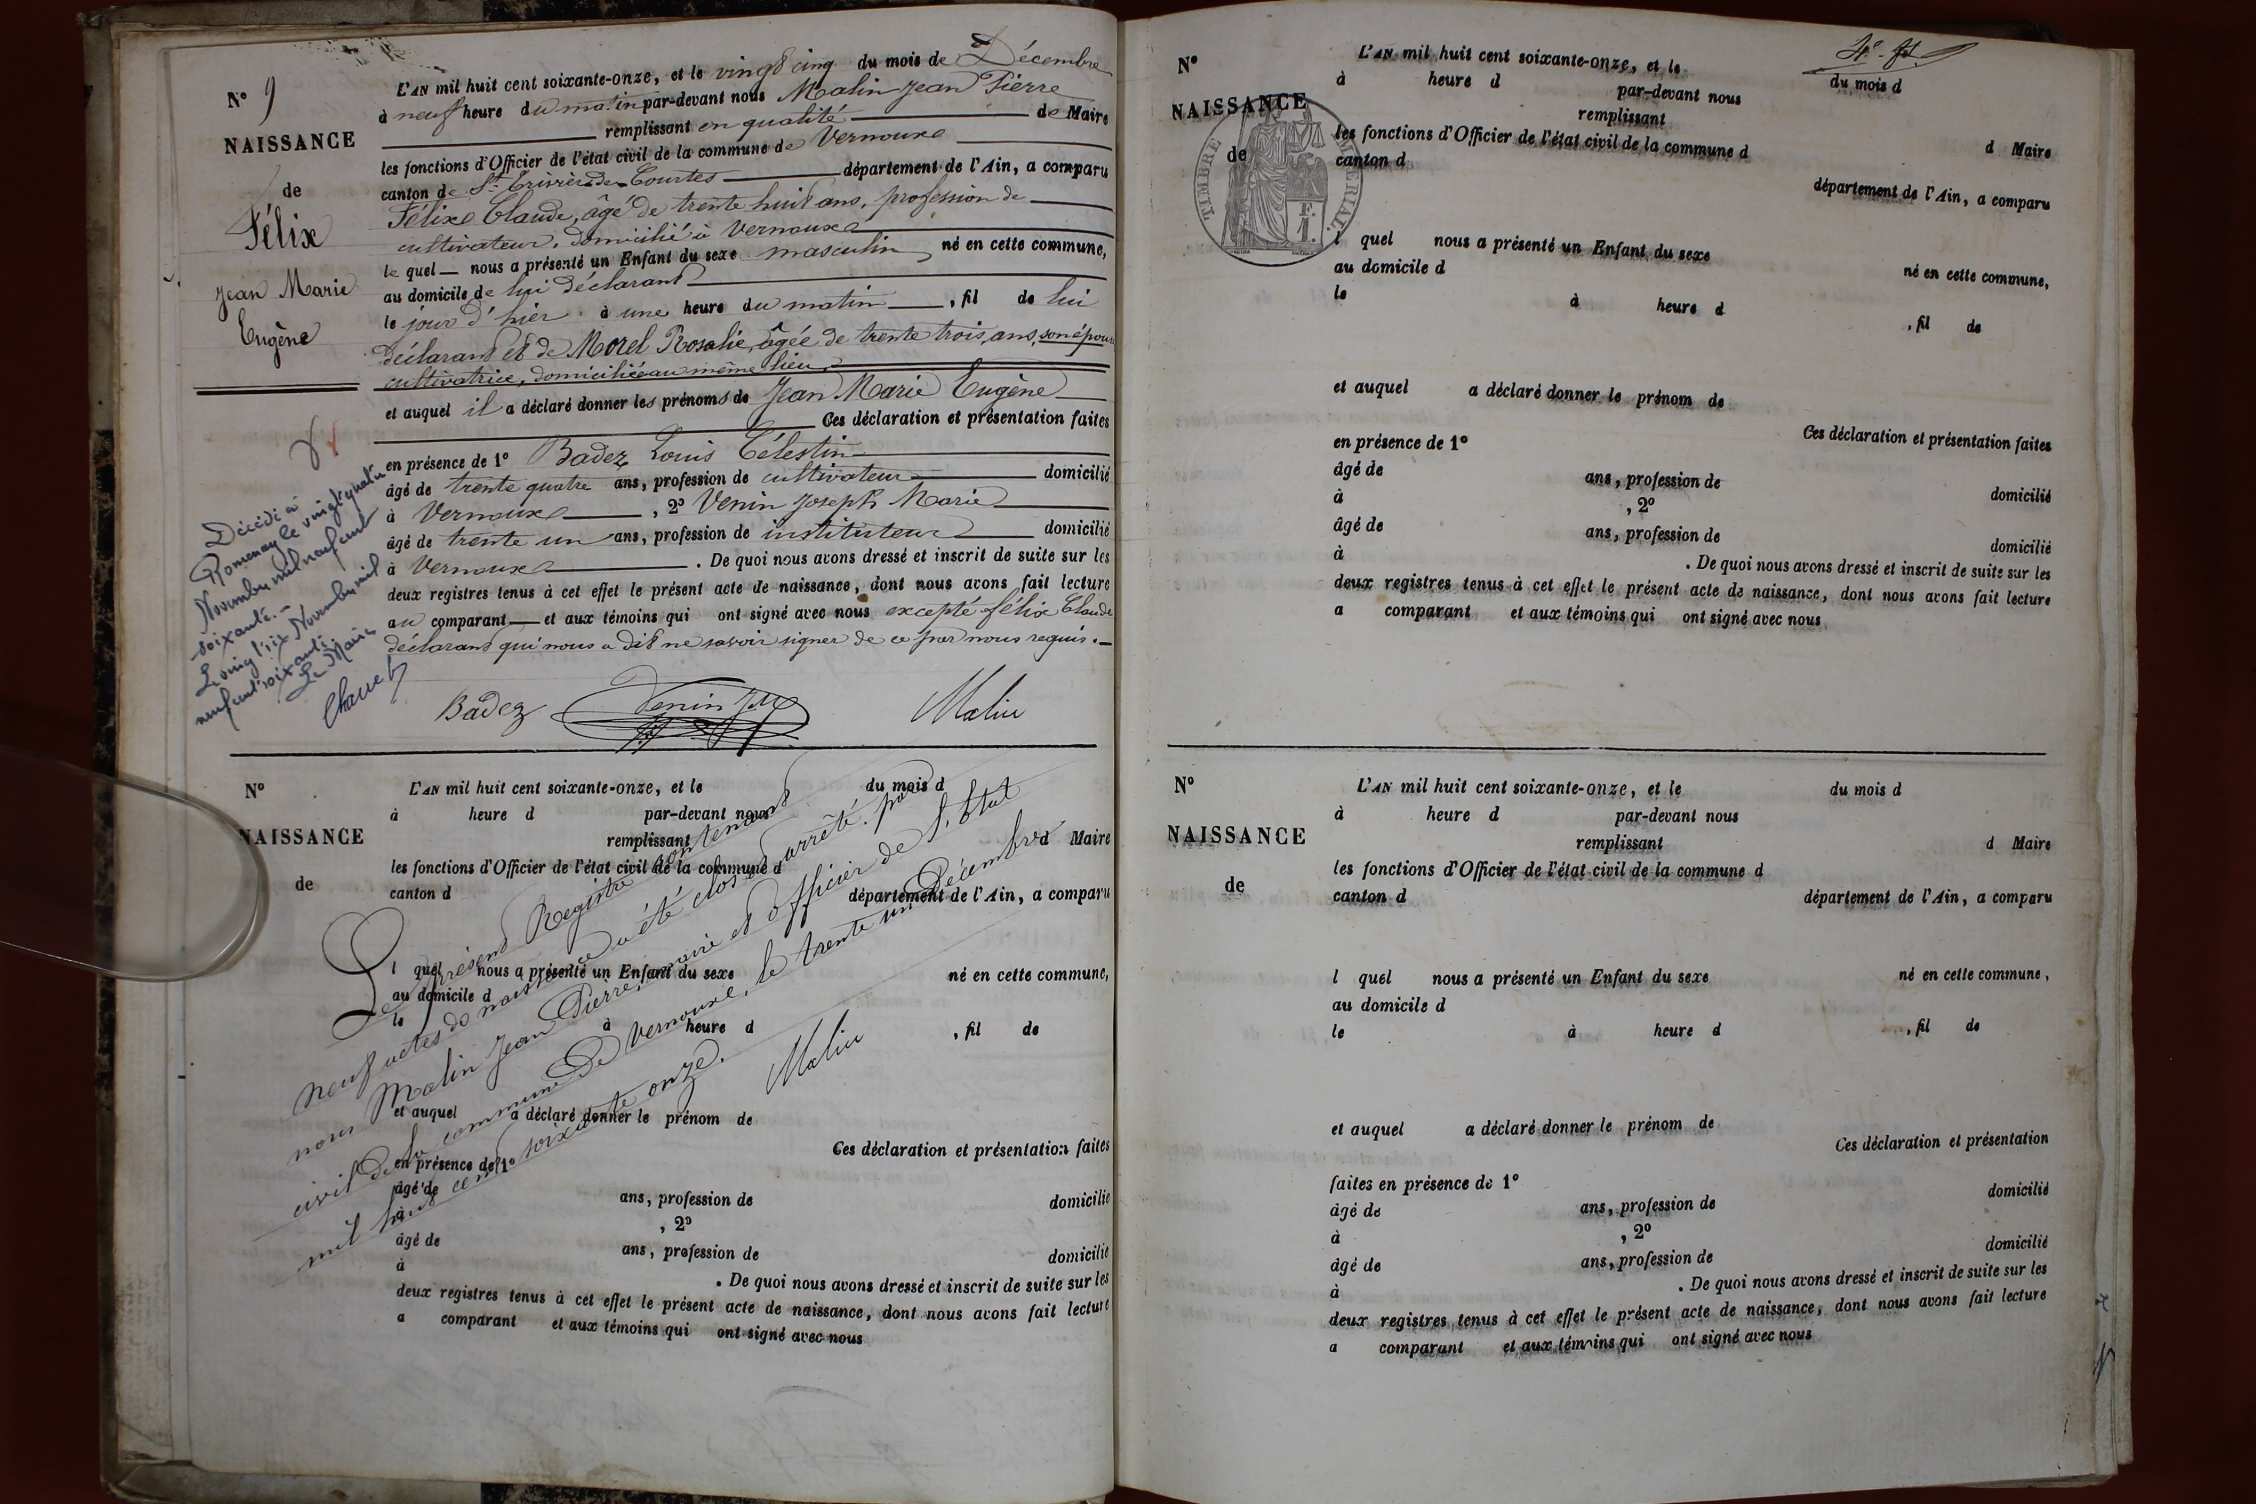 N° 9
NAISSANCE
de
Félix
Jean Marie
Eugène
L'AN mil huit cent soixante-onze, et le vingt cinq du mois de Décembre
à neuf heure du matin par-devant nous Malin Jean Pierre
remplissant en qualité de Maire
les fonctions d'Officier de l'état civil de la commune de Vernoux
canton de St. Trivier de Courtes département de l'Ain, a comparu
Félix Claude, âgé de trente huit ans, profession de
cultivateur, domicilié à Vernoux
le quel nous a présenté un Enfant du sexe masculin né en cette commune,
au domicile de lui déclarant
le jour d'hier à une heure du matin, fil de lui
déclarant et de Morel Rosalie, âgée de trente trois, ans, son épouse
cultivatrice, domiciliée au même lieu,
et auquel il a déclaré donner les prénoms de Jean Marie Eugène
Ces déclaration et présentation faites
en présence de 1° Badez Louis Célestin
âgé de trente quatre ans, profession de cultivateur domicilié
à Vernoux, 2° Venin Joseph Marie
âgé de trente un ans, profession de instituteur domicilié
à Vernoux. De quoi nous avons dressé et inscrit de suite sur les
deux registres tenus à cet effet le présent acte de naissance, dont nous avons fait lecture
au comparant et aux témoins qui ont signé avec nous excepté félix Claude
déclarant qui nous a dit ne savoir signer de ce par nous requis.
Décédé à
Romenay le vingt quatre
Novembre mil neuf cent
soixante.
Le vingt six Novembre mil
neuf cent soixante
Le Maire
Badez Venin J M Malin
N°
NAISSANCE
de
L'AN mil huit cent soixante-onze, et le du mois d
à heure d par-devant nous
remplissant d Maire
les fonctions d'Officier de l'état civil de la commune d
canton d département de l'Ain, a comparu
l quel nous a présenté un Enfant du sexe né en cette commune,
au domicile d
le à heure d , fil de
et auquel a déclaré donner le prénom de
Ces déclaration et présentation faites
en présence de 1°
âgé de ans, profession de domicilié
à , 2°
âgé de ans, profession de domicilié
à . De quoi nous avons dressé et inscrit de suite sur les
deux registres tenus à cet effet le présent acte de naissance, dont nous avons fait lecture
a comparant et aux témoins qui ont signé avec nous
Le présent Registre contenant
neuf actes de naissance a été clos et arrêté par
nous Malin Jean Pierre, maire et officier de l'Etat
civil de la commune de Vernoux, le trente un Décembre
mil huit cent soixante onze.
Malin
N°
NAISSANCE
de
TIMBRE IMPÉRIAL.
F.
1.
L'AN mil huit cent soixante-onze, et le du mois d
à heure d par-devant nous
remplissant d Maire
les fonctions d'Officier de l'état civil de la commune d
canton d département de l'Ain, a comparu
l quel nous a présenté un Enfant du sexe né en cette commune,
au domicile d
le à heure d , fil de
et auquel a déclaré donner le prénom de
Ces déclaration et présentation faites
en présence de 1°
âgé de ans, profession de domicilié
à , 2°
âgé de ans, profession de domicilié
à . De quoi nous avons dressé et inscrit de suite sur les
deux registres tenus à cet effet le présent acte de naissance, dont nous avons fait lecture
a comparant et aux témoins qui ont signé avec nous
N°
NAISSANCE
de
L'AN mil huit cent soixante-onze, et le du mois d
à heure d par-devant nous
remplissant d Maire
les fonctions d'Officier de l'état civil de la commune d
canton d département de l'Ain, a comparu
l quel nous a présenté un Enfant du sexe né en cette commune,
au domicile d
le à heure d , fil de
et auquel a déclaré donner le prénom de
Ces déclaration et présentation
faites en présence de 1°
âgé de ans, profession de domicilié
à , 2°
âgé de ans, profession de domicilié
à . De quoi nous avons dressé et inscrit de suite sur les
deux registres tenus à cet effet le présent acte de naissance, dont nous avons fait lecture
a comparant et aux témoins qui ont signé avec nous